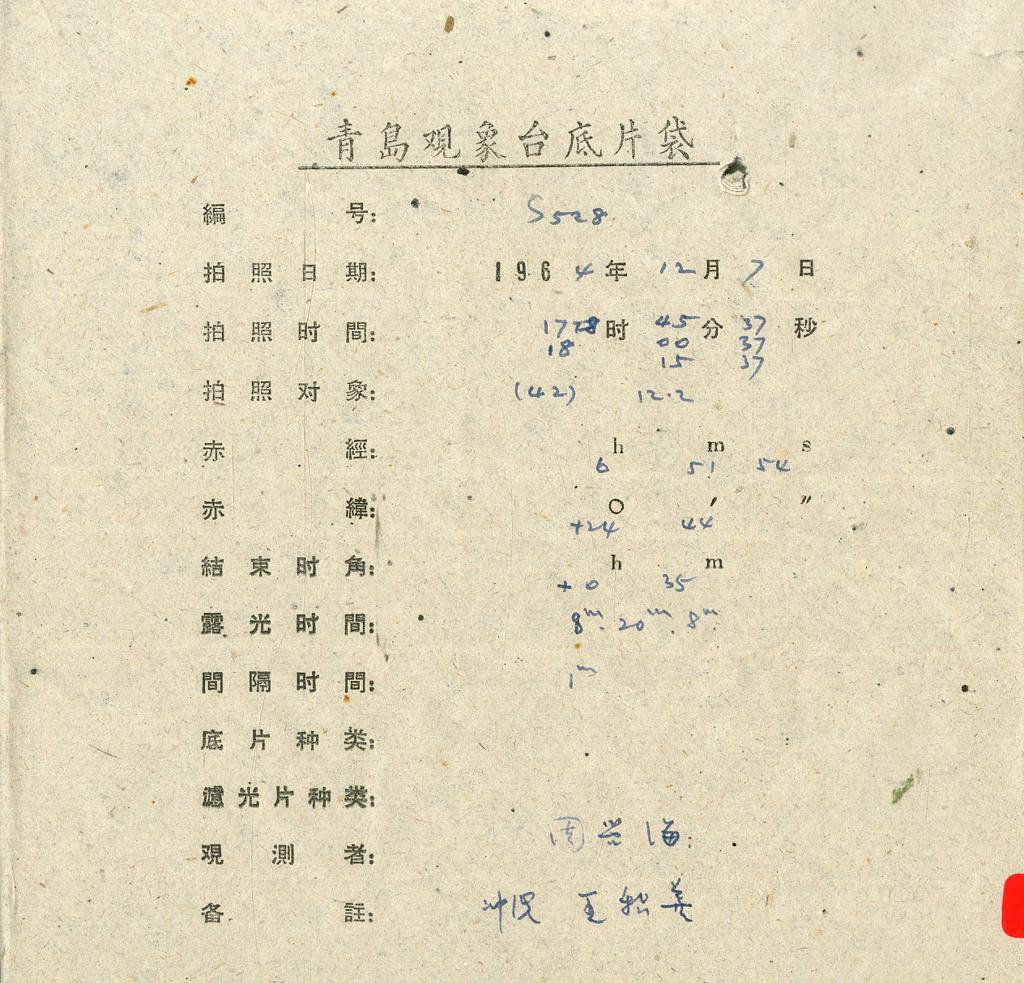 青島观象台底片袋
編号: S528
拍照日期: 1964年12月7日
拍照时間: 17 时 45 分 37 秒
18 00 37
15 37
拍照对象: (42) 12.2
赤經: h m s
6 51 54
赤緯: ○ ′ ″
+24 44
結束时角: h m
+0 35
露光时間: 8m. 20m. 8m
間隔时間: 1m
底片种类:
濾光片种类:
观測者: 周兴海
备註: 冲洗 王